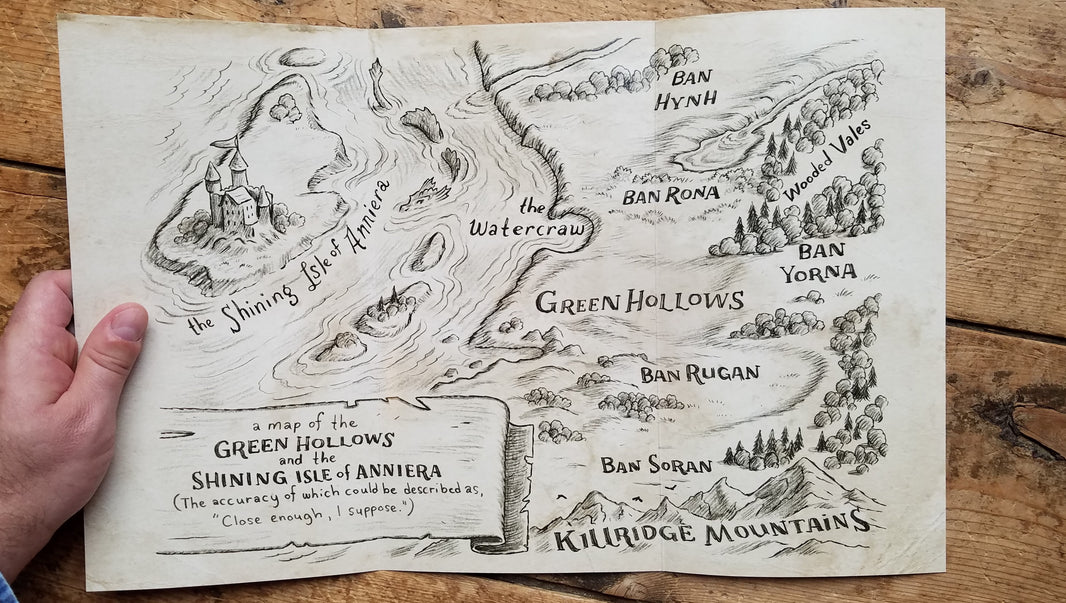 BAN
HYNH
Wooded Vales
BAN RONA
the
Watercraw
the Shining Isle of Anniera
BAN
YORNA
GREEN HOLLOWS
BAN RUGAN
a map of the
GREEN HOLLOWS
and the
SHINING ISLE of ANNIERA
(The accuracy of which could be described as,
"Close enough, I suppose.")
BAN SORAN
KILLRIDGE MOUNTAINS